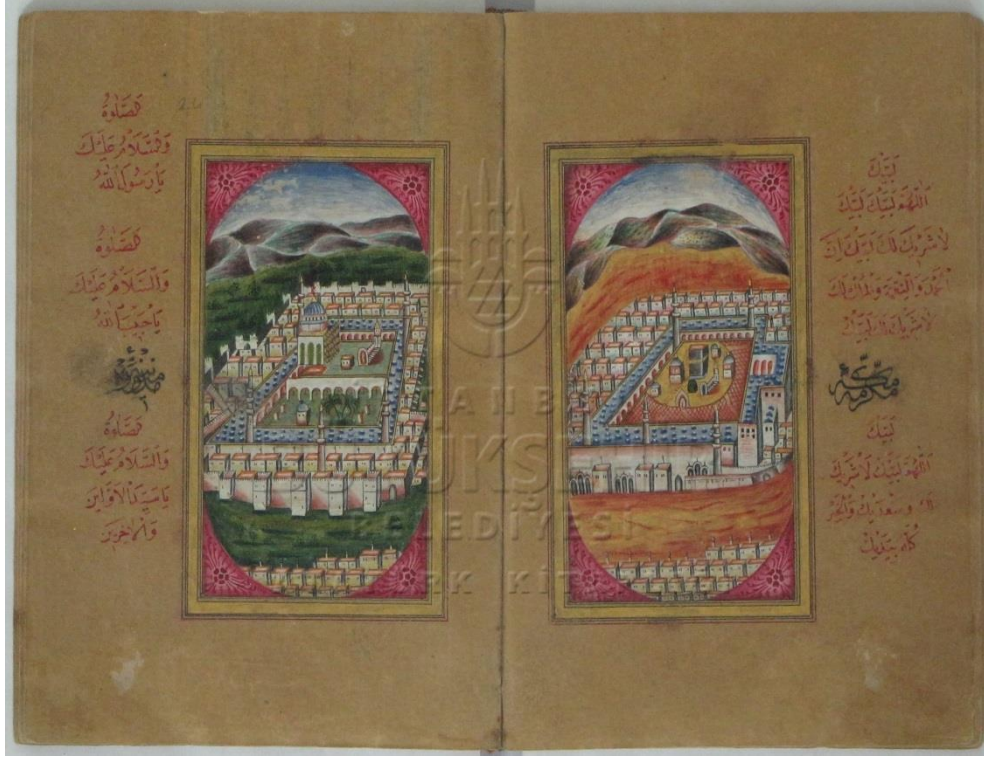 لَبَّيْكَ
اَللّٰهُمَّ لَبَّيْكَ لَبَّيْكَ
لَا شَرِيكَ لَكَ لَبَّيْكَ اِنَّ
الْحَمْدَ وَالنِّعْمَةَ وَالْمُلْكَ لَكَ
لَا شَرِيكَ لَكَ لَبَّيْكَ
مكة مكرمه
لَبَّيْكَ
اَللّٰهُمَّ لَبَّيْكَ لَا شَرِيكَ
لَكَ وَسَعْدَيْكَ وَالْخَيْرُ
كُلُّهُ بِيَدَيْكَ
اَلصَّلٰوةُ
وَالسَّلَامُ عَلَيْكَ
يَا رَسُولَ اللّٰهِ
اَلصَّلٰوةُ
وَالسَّلَامُ عَلَيْكَ
يَا حَبِيبَ اللّٰهِ
منوره
اَلصَّلٰوةُ
وَالسَّلَامُ عَلَيْكَ
يَا سَيِّدَ الْاَوَّلِينَ
وَالْاٰخِرِينَ
BELEDİYESİ